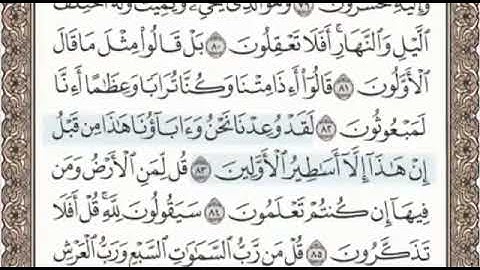 وَإِلَيْهِ تُحْشَرُونَ ۝٧٩ وَهُوَ ٱلَّذِى يُحْىِۦ وَيُمِيتُ وَلَهُ ٱخْتِلَٰفُ
ٱلَّيْلِ وَٱلنَّهَارِ ۚ أَفَلَا تَعْقِلُونَ ۝٨٠ بَلْ قَالُوا۟ مِثْلَ مَا قَالَ
ٱلْأَوَّلُونَ ۝٨١ قَالُوٓا۟ أَءِذَا مِتْنَا وَكُنَّا تُرَابًا وَعِظَٰمًا أَءِنَّا
لَمَبْعُوثُونَ ۝٨٢ لَقَدْ وُعِدْنَا نَحْنُ وَءَابَآؤُنَا هَٰذَا مِن قَبْلُ
إِنْ هَٰذَآ إِلَّآ أَسَٰطِيرُ ٱلْأَوَّلِينَ ۝٨٣ قُل لِّمَنِ ٱلْأَرْضُ وَمَن
فِيهَآ إِن كُنتُمْ تَعْلَمُونَ ۝٨٤ سَيَقُولُونَ لِلَّهِ ۚ قُلْ أَفَلَا
تَذَكَّرُونَ ۝٨٥ قُلْ مَن رَّبُّ ٱلسَّمَٰوَٰتِ ٱلسَّبْعِ وَرَبُّ ٱلْعَرْشِ